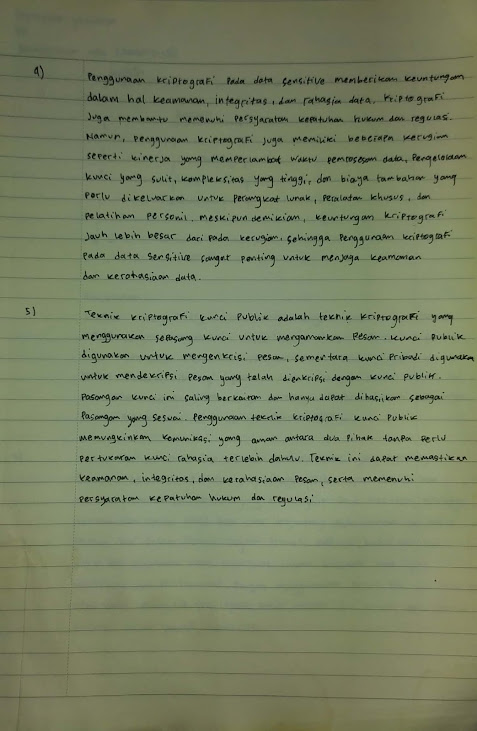 4) Penggunaan kriptografi pada data sensitive memberikan keuntungan
dalam hal keamanan, integritas, dan rahasia data. Kriptografi
juga membantu memenuhi persyaratan kepatuhan hukum dan regulasi.
Namun, penggunaan kriptografi juga memiliki beberapa kerugian
seperti kinerja yang memperlambat waktu pemrosesan data, pengelolaan
kunci yang sulit, kompleksitas yang tinggi, dan biaya tambahan yang
perlu dikeluarkan untuk perangkat lunak, peralatan khusus, dan
pelatihan personil. meskipun demikian, keuntungan kriptografi
jauh lebih besar dari pada kerugian, sehingga penggunaan kriptografi
pada data sensitive sangat penting untuk menjaga keamanan
dan kerahasiaan data.
5) Teknik kriptografi kunci publik adalah teknik kriptografi yang
menggunakan sepasang kunci untuk mengamankan pesan. kunci publik
digunakan untuk mengenkrisi pesan, sementara kunci pribadi digunakan
untuk mendekripsi pesan yang telah dienkripsi dengan kunci publik.
Pasangan kunci ini saling berkaitan dan hanya dapat dihasilkan sebagai
pasangan yang sesuai. Penggunaan teknik kriptografi kunci publik
memungkinkan komunikasi yang aman antara dua pihak tanpa perlu
pertukaran kunci rahasia terlebih dahulu. Teknik ini dapat memastikan
keamanan, integritas, dan kerahasiaan pesan, serta memenuhi
persyaratan kepatuhan hukum dan regulasi